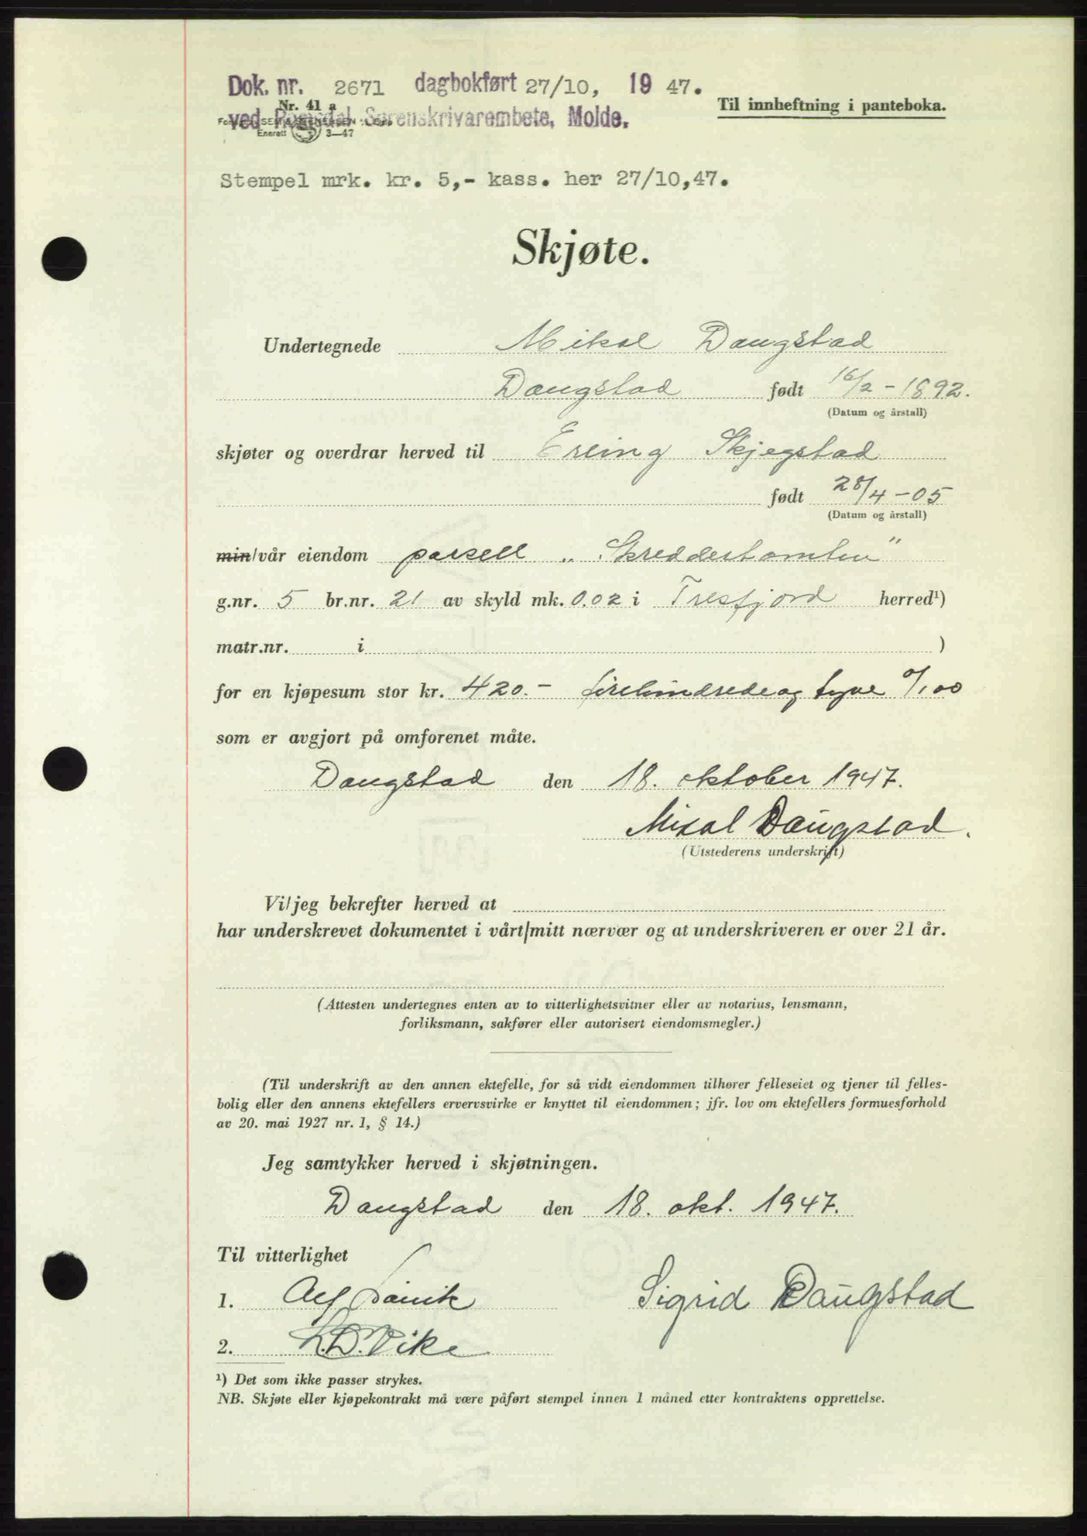 Dok. nr. 2671 dagbokført 27/10, 1947.
Nr. 41 a
Til innheftning i panteboka.
ved Romsdal Sorenskrivarembete, Molde.
Enerett 3—47
Stempel mrk. kr. 5,- kass. her 27/10,47.
Skjøte.
Undertegnede Mikal Daugstad
Daugstad født 16/2 - 1892.
(Datum og årstall)
skjøter og overdrar herved til Erling Skjegstad
født 28/4 - 05
(Datum og årstall)
min/vår eiendom parsell „Skreddertomten"
g.nr. 5 br.nr. 21 av skyld mk. 0.02 i Tresfjord herred¹)
matr.nr. i )
for en kjøpesum stor kr. 420.- firehundredeog tyve 0/100
som er avgjort på omforenet måte.
Daugstad den 18. oktober 1947.
Mikal Daugstad.
(Utstederens underskrift)
Vi/jeg bekrefter herved at
har underskrevet dokumentet i vårt/mitt nærvær og at underskriveren er over 21 år.
(Attesten undertegnes enten av to vitterlighetsvitner eller av notarius, lensmann,
forliksmann, sakfører eller autorisert eiendomsmegler.)
(Til underskrift av den annen ektefelle, for så vidt eiendommen tilhører felleseiet og tjener til felles-
bolig eller den annens ektefellers ervervsvirke er knyttet til eiendommen; jfr. lov om ektefellers formuesforhold
av 20. mai 1927 nr. 1, § 14.)
Jeg samtykker herved i skjøtningen.
Daugstad den 18. okt. 1947.
Til vitterlighet
1. Alf
Sigrid Daugstad
2. L.D. Vike
¹) Det som ikke passer strykes.
NB. Skjøte eller kjøpekontrakt må være påført stempel innen 1 måned etter kontraktens opprettelse.